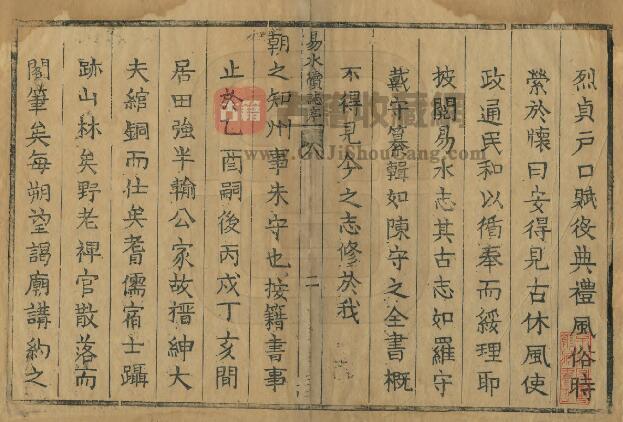 烈貞戶口賦役典禮風俗時
縈於懷曰安得見古休風使
政通民和以循奉而綏理耶
披閱易水志其古志如羅守
戴守纂輯如陳守之全書概
不得見今之志修於我
易水續志序
二
朝之知州事朱守也按籍書事
止於乙酉嗣後丙戌丁亥間
居田強半輸公家故搢紳大
夫綰銅而仕矣耆儒宿士躡
跡山林矣野老稗官散落而
閣筆矣每朔望謁廟講約之
古籍收藏網
www.GuJiShouCang.com
古籍